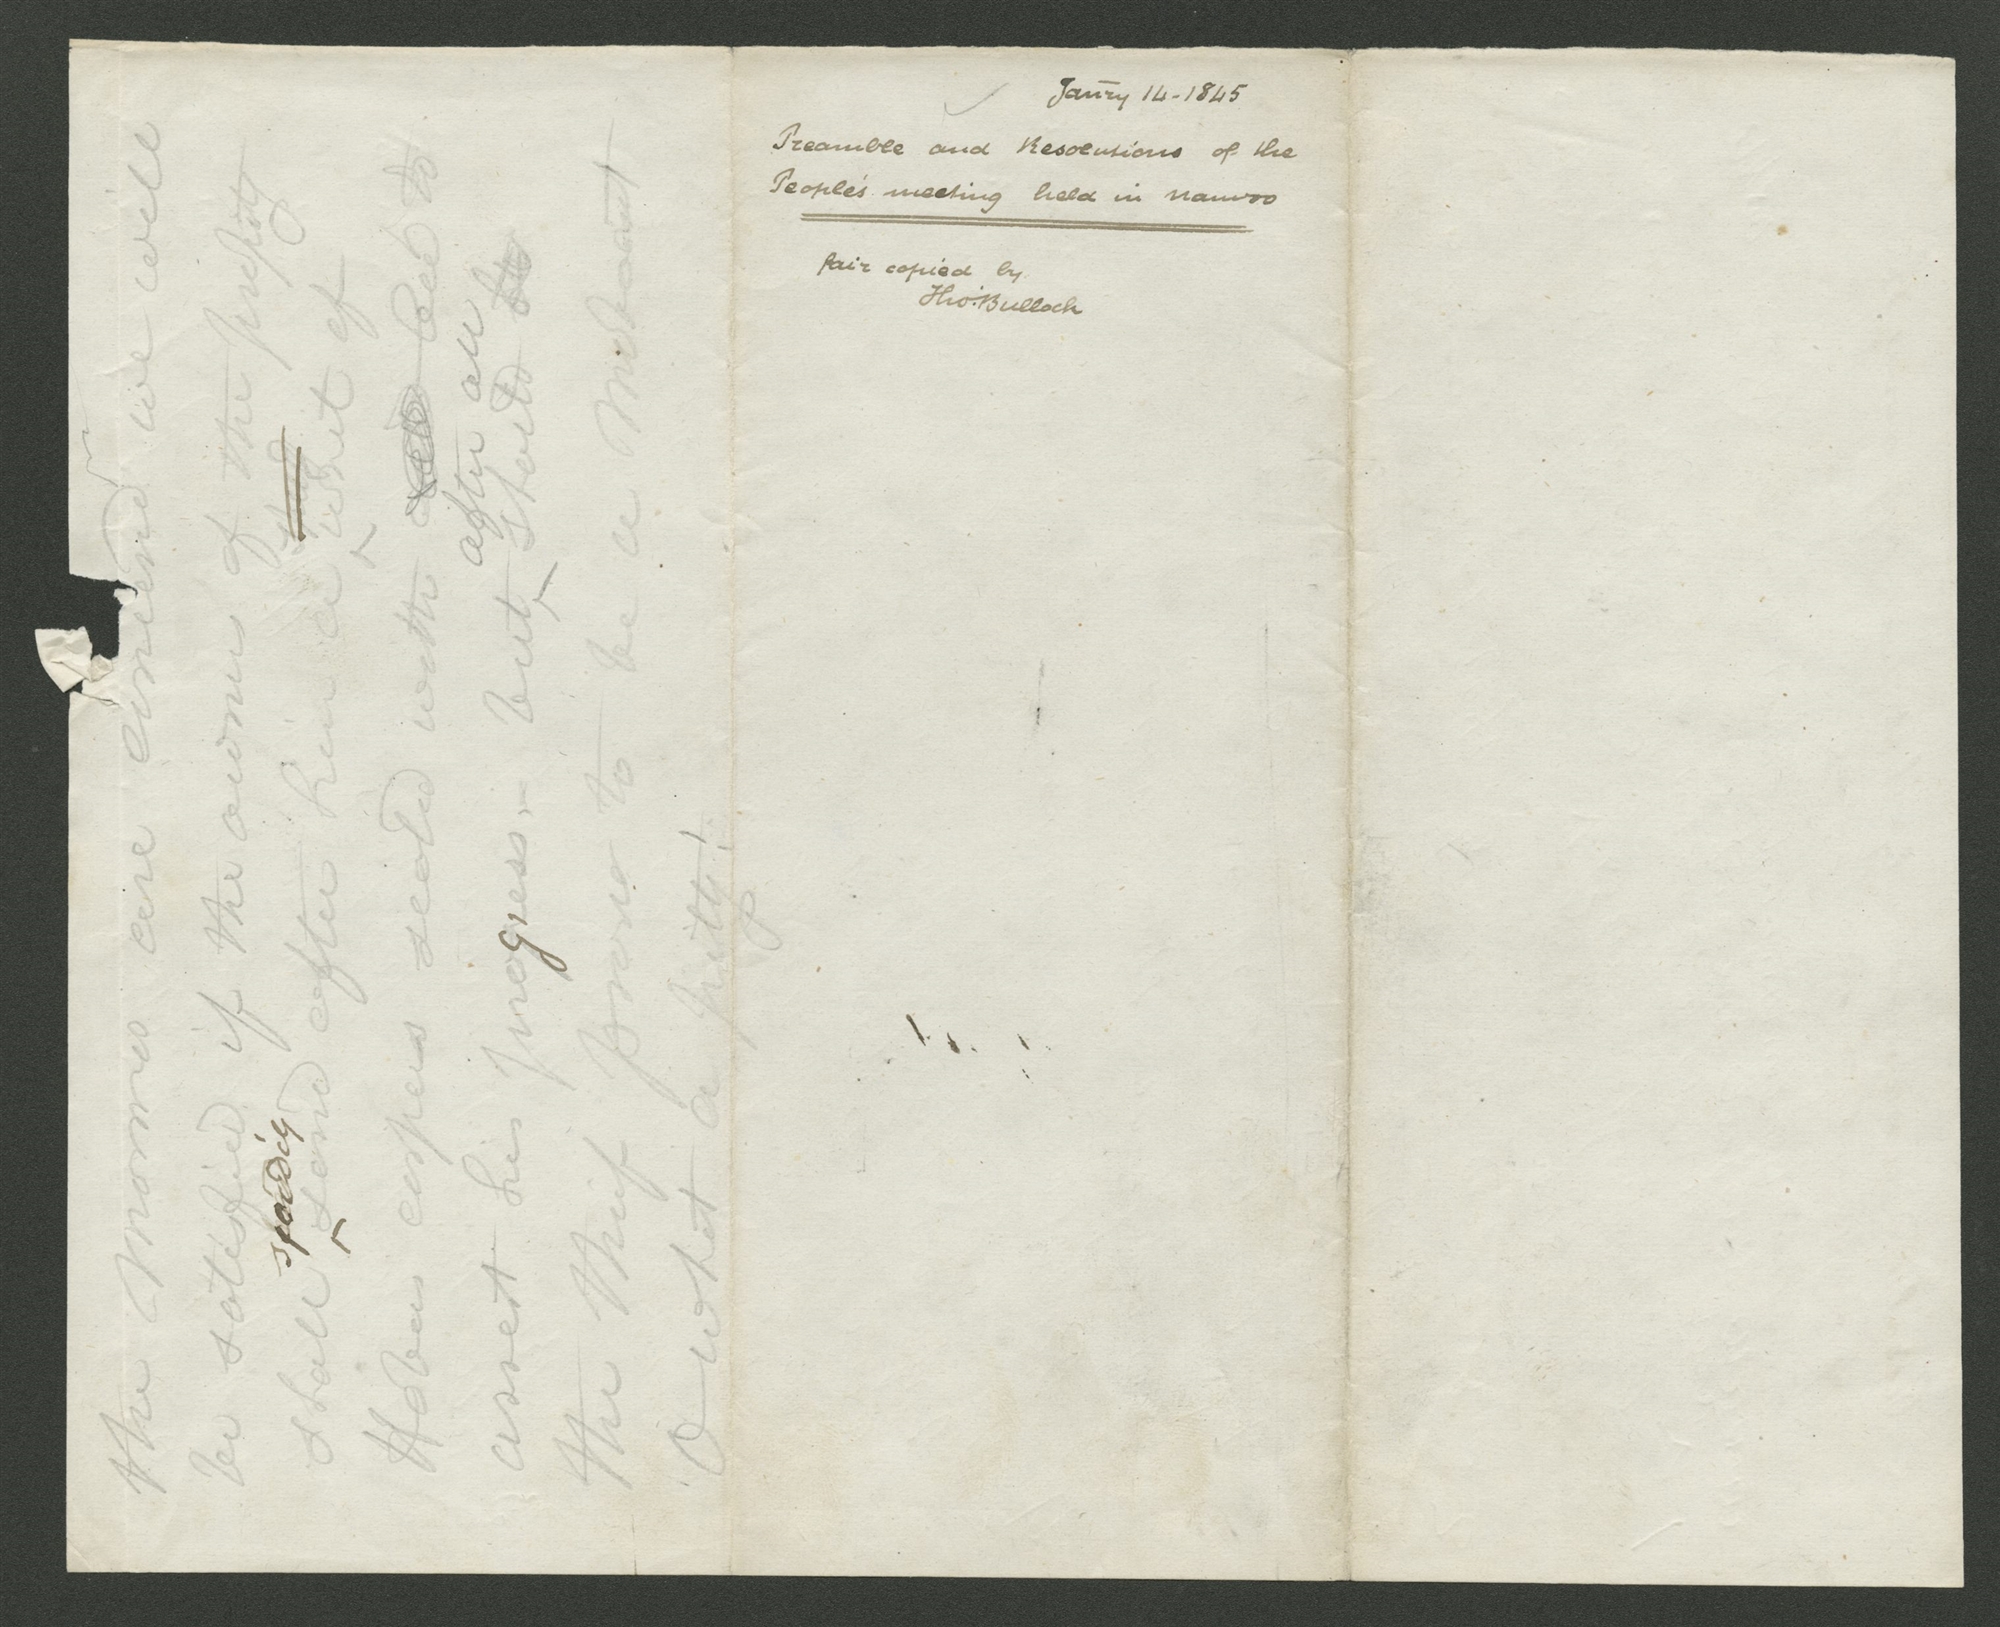 Janry 14-1845
Preamble and Resolutions of the
People's meeting held in Nauvoo
fair copied by
Tho: Bullock
the Mormons are concerned we will
be satisfied if the owners of the
shall speedily send after him a writ of
Habeas corpus with to
arrest his progress,- but after all should
the thief prove to be a
O what a pitty!